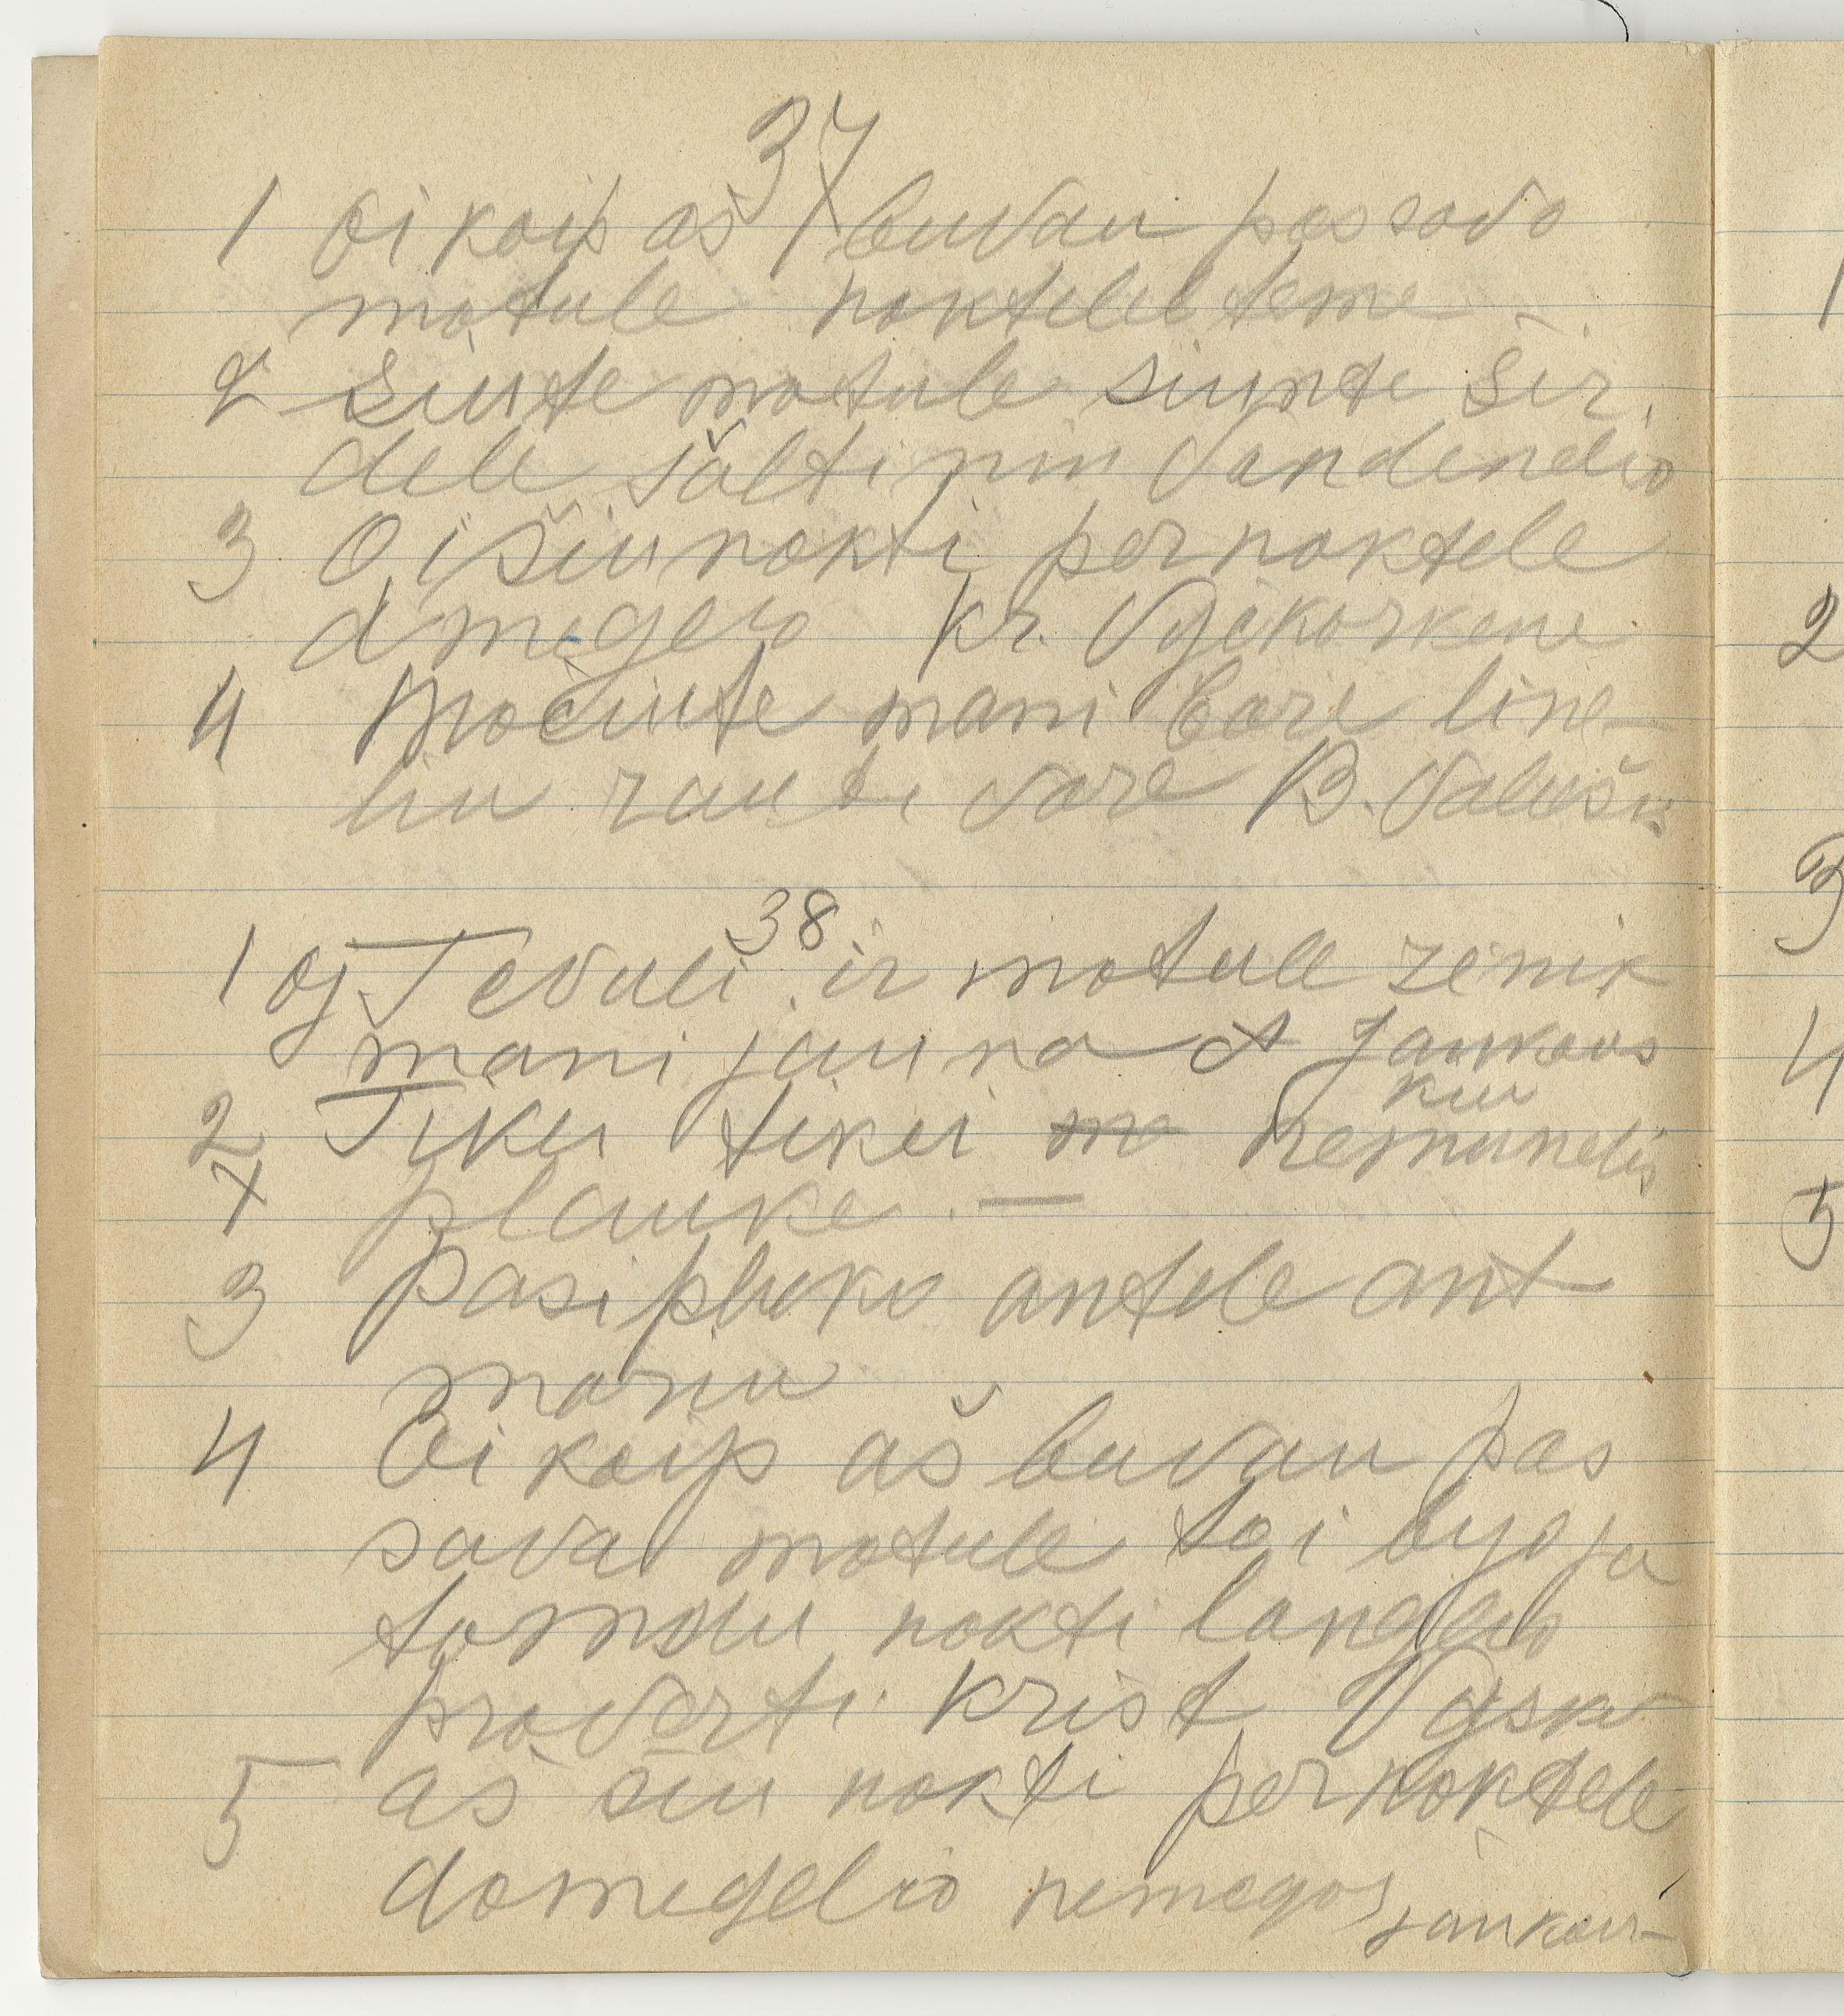 37
1 Oi kaip aš buvau pas savo
matule naktelel teme -
2 Siute matule siunte šir
dele šaltinin Vandenelio
3 Oi šiu nakti per naktele
d megelo kr. Vyckorkene
4 Močiute mani bare line-
liu rauti vare B. Valuši
38
1 oj Tevuli ir matule zinik
mani jauna A Jankaus
kiu
2 Tikei tikei nemunelis
x plauke. —
3 Pasipluko antele ant
mariu
4 Oi kaip aš buvau pas
sava matule tai byoja
tamsu nakti langelio
praverti Krist Vask
5 aš šiu nakti per naktele
domegelio nemegos Jankau-
1
2
3
4
5